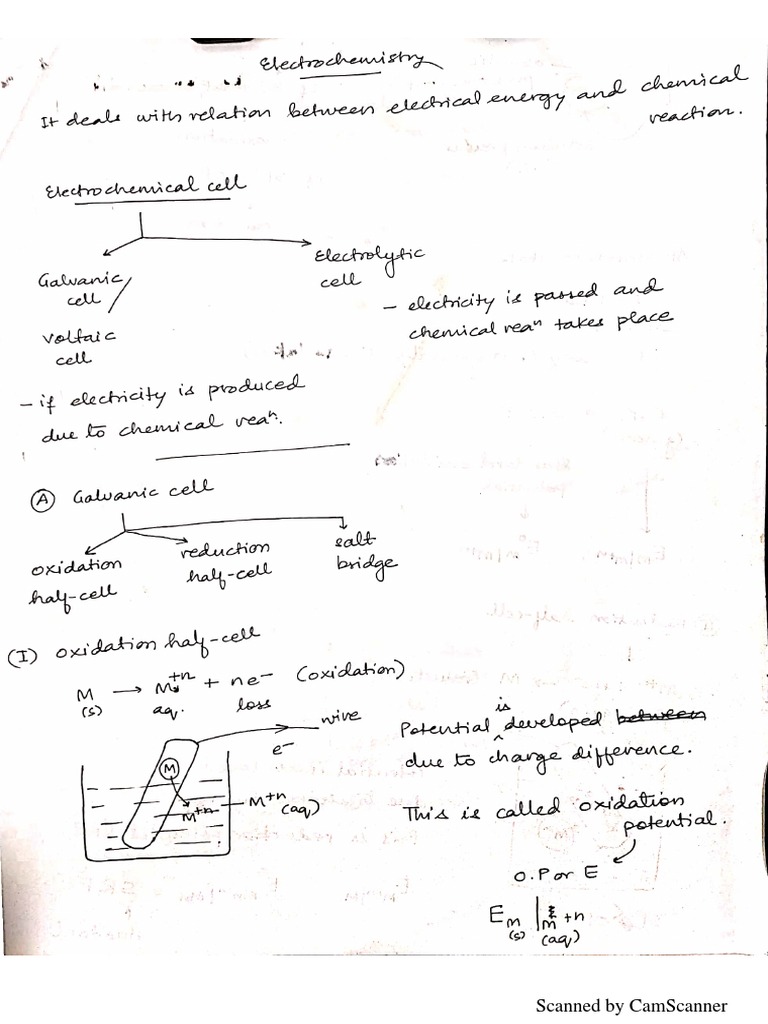 Electrochemistry
It deals with relation between electrical energy and chemical
reaction.
Electrochemical cell
Galvanic
cell /
Voltaic
cell
- if electricity is produced
due to chemical reaⁿ.
Electrolytic
cell
- electricity is passed and
chemical reaⁿ takes place
(A) Galvanic cell
oxidation
half-cell
reduction
half-cell
salt
bridge
(I) oxidation half-cell
M ⟶ M⁺ⁿ + ne⁻ (oxidation)
(s) aq. loss
wire
e⁻
M
M⁺ⁿ
M⁺ⁿ
(aq)
Potential is developed between
due to charge difference.
This is called oxidation
potential.
O.P or E
E M | M⁺ⁿ
(s) (aq)
Scanned by CamScanner